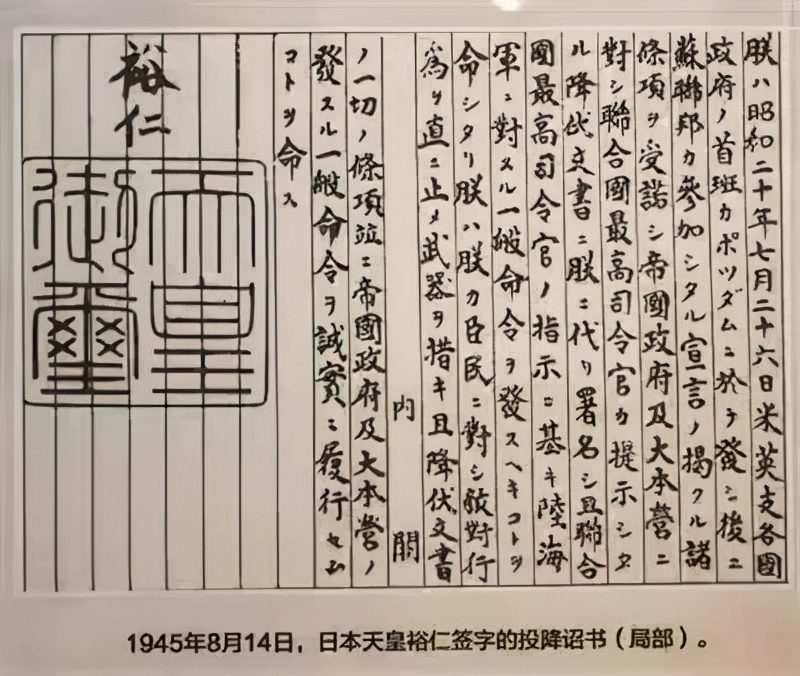 朕ハ昭和二十年七月二十六日米英支各國
政府ノ首班カポツダムニ於テ發シ後ニ
蘇聯邦カ參加シタル宣言ノ揭クル諸
條項ヲ受諾シ帝國政府及大本營ニ
對シ聯合國最高司令官カ提示シタ
ル降伏文書ニ朕ニ代リ署名シ且聯合
國最高司令官ノ指示ニ基キ陸海
軍ニ對スル一般命令ヲ發スヘキコトヲ
命シタリ朕ハ朕カ臣民ニ對シ敵對行
爲ヲ直ニ止メ武器ヲ措キ且降伏文書
內閣
ノ一切ノ條項竝ニ帝國政府及大本營ノ
發スル一般命令ヲ誠實ニ履行セム
コトヲ命ス
裕仁
天皇
御璽
1945年8月14日，日本天皇裕仁签字的投降诏书（局部）。